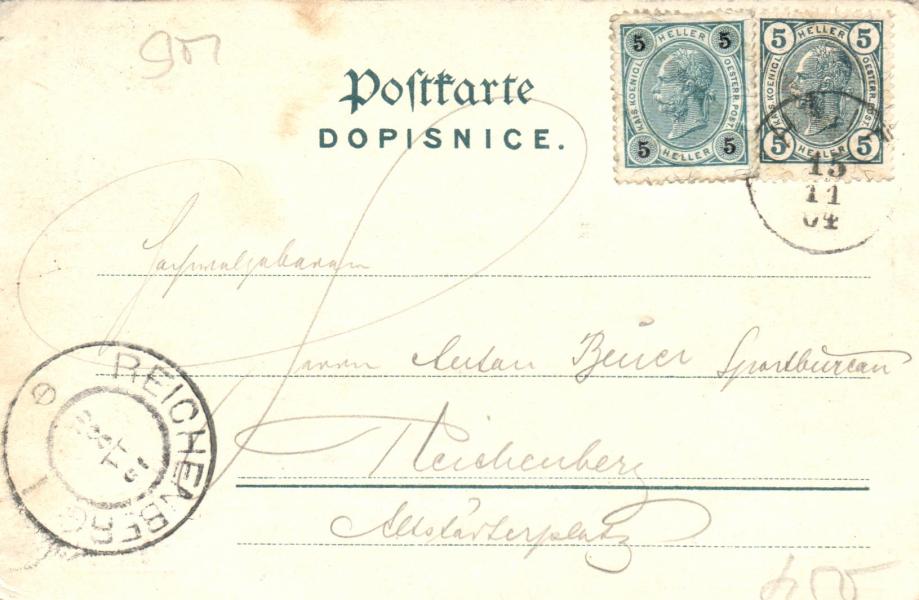 5 HELLER 5
KAIS. KOENIGL. OESTERR. POST.
5 HELLER 5
5 HELLER 5
KAIS. KOENIGL. OESTERR. POST.
5 HELLER 5
Postkarte
DOPISNICE.
15
11
04
Hochwolgeboren
Herrn Anton Beuer Sportbureau
Reichenberg
Altstädterplatz
REICHENBERG
1